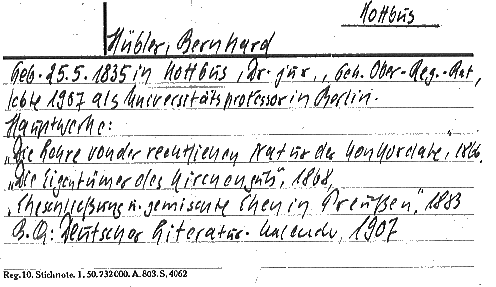 Kottbus
Hübler, Bernhard
Geb. 25.5.1835 in Kottbus, Dr. jur., Geh. Ober-Reg.-Rat,
lebte 1907 als Universitätsprofessor in Berlin.
Hauptwerke:
„Die Lehre von der rechtlichen Natur der Konkordate", 1866.
„Die Eigentümer des Kirchenguts", 1868,
„Eheschließung u. gemischte Ehen in Preußen", 1883
B.Q: Deutscher Literatur-Kalender, 1907
Reg. 10. Stichnote. 1, 50. 732 000. A. 803. S, 4062